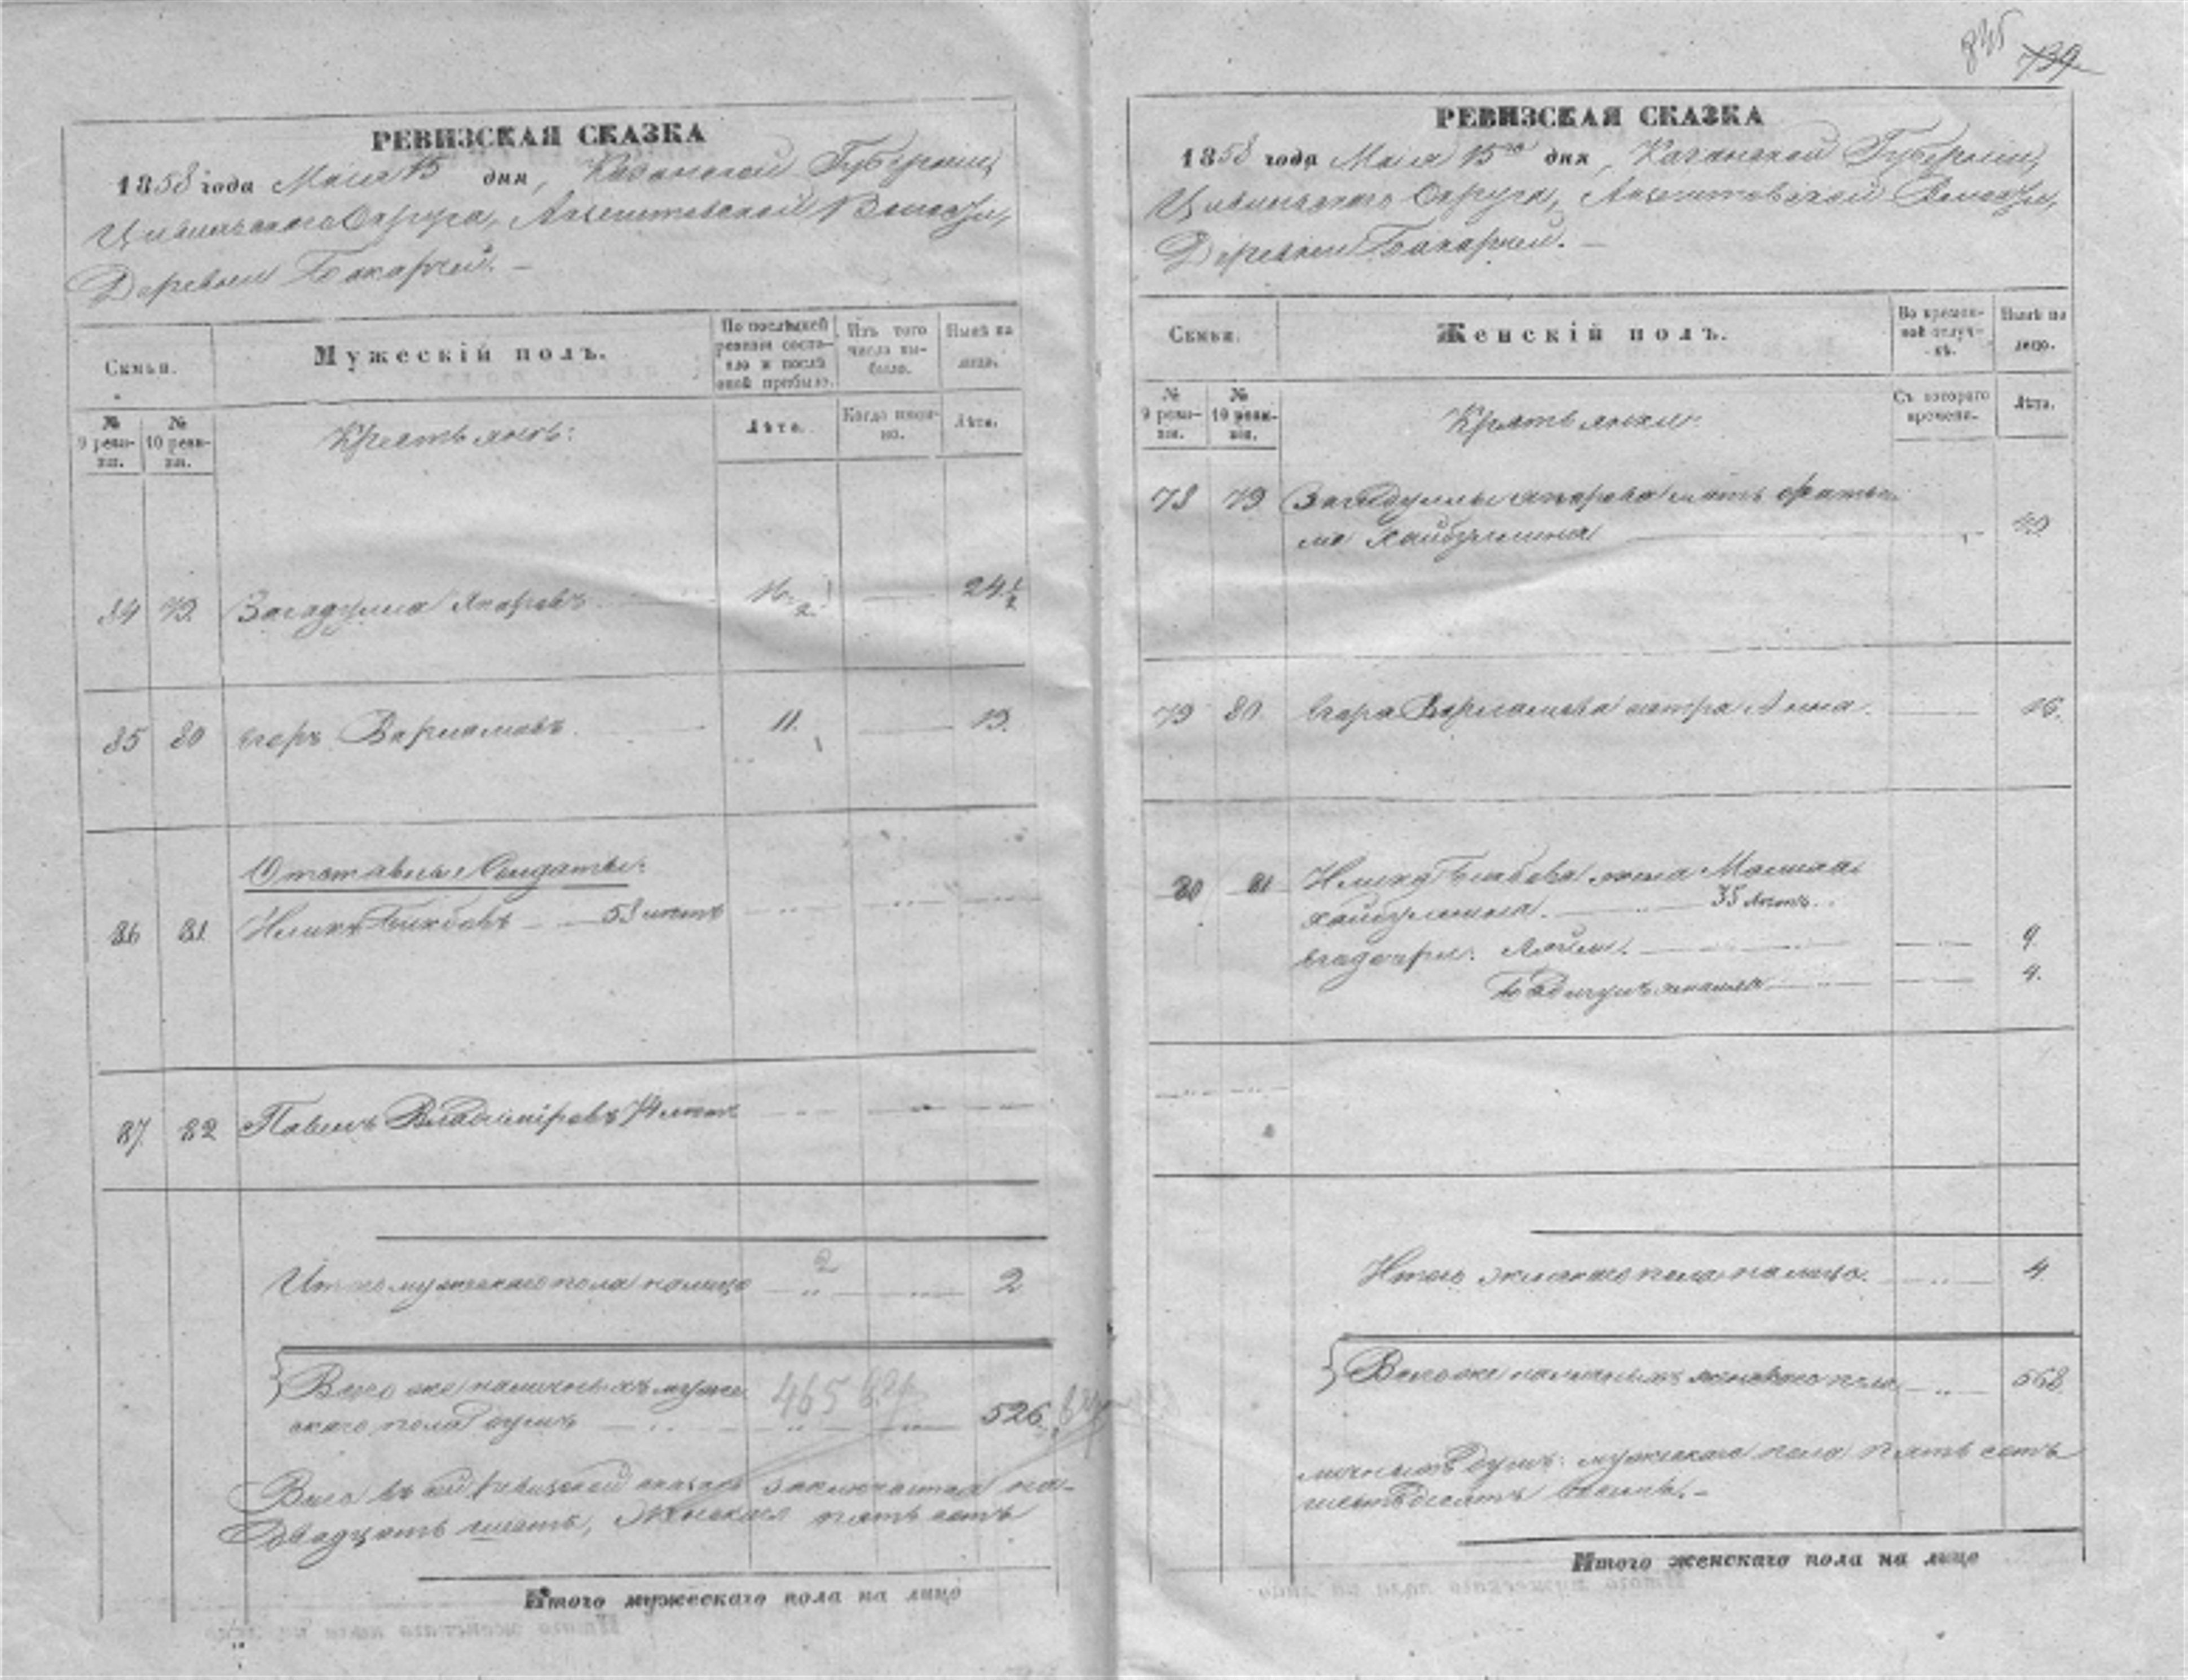 835 739
РЕВИЗСКАЯ СКАЗКА
1858 года Мая 15 дня, Казанской Губерніи,
Цивильскаго Округа, Волости,
Деревни
Семьи.
Мужескій полъ.
По послѣдней ревизіи состояло и послѣ оной прибыло.
Изъ того числа выбыло.
Нынѣ на лицо.
№ 9 ревизіи.
№ 10 ревизіи.
Крестьянъ:
Лѣта.
Когда именно.
Лѣта.
84 79 Загадулла Япаровъ 16 1/2 24 1/2
85 80 Егоръ Варламовъ 11. 19.
Отставные Солдаты:
86 81 Бикбовъ 58 летъ
87 82 Павелъ Владиміровъ 74 летъ
Итого мужескаго пола на лицо 2 2
Всего же наличныхъ муже
скаго пола душъ 465 526
Всего въ сей ревизской сказке заключается на-
двадцать шесть, женскаго пять сотъ
Итого мужескаго пола на лицо
РЕВИЗСКАЯ СКАЗКА
1858 года Мая 15го дня, Казанской Губерніи,
Цивильскаго Округа, Волости,
Деревни
Семьи.
Женскій полъ.
Во временной отлучкѣ.
Нынѣ на лицо.
№ 9 ревизіи.
№ 10 ревизіи.
Крестьянки:
Съ котораго времени.
Лѣта.
78 79 Загадуллы Япарова мать Фатьи
ма Хайбуллина
79 80 Егора Варламова сестра Анна 16.
80 81 Бикбова жена
Хайбуллина. 35 летъ.
его дочери: 9.
4.
Итого женскаго пола на лицо. 4
Всего же наличныхъ женскаго пола 568
личныхъ душъ: мужескаго пола пять сотъ
шестьдесятъ восемь.-
Итого женскаго пола на лицо